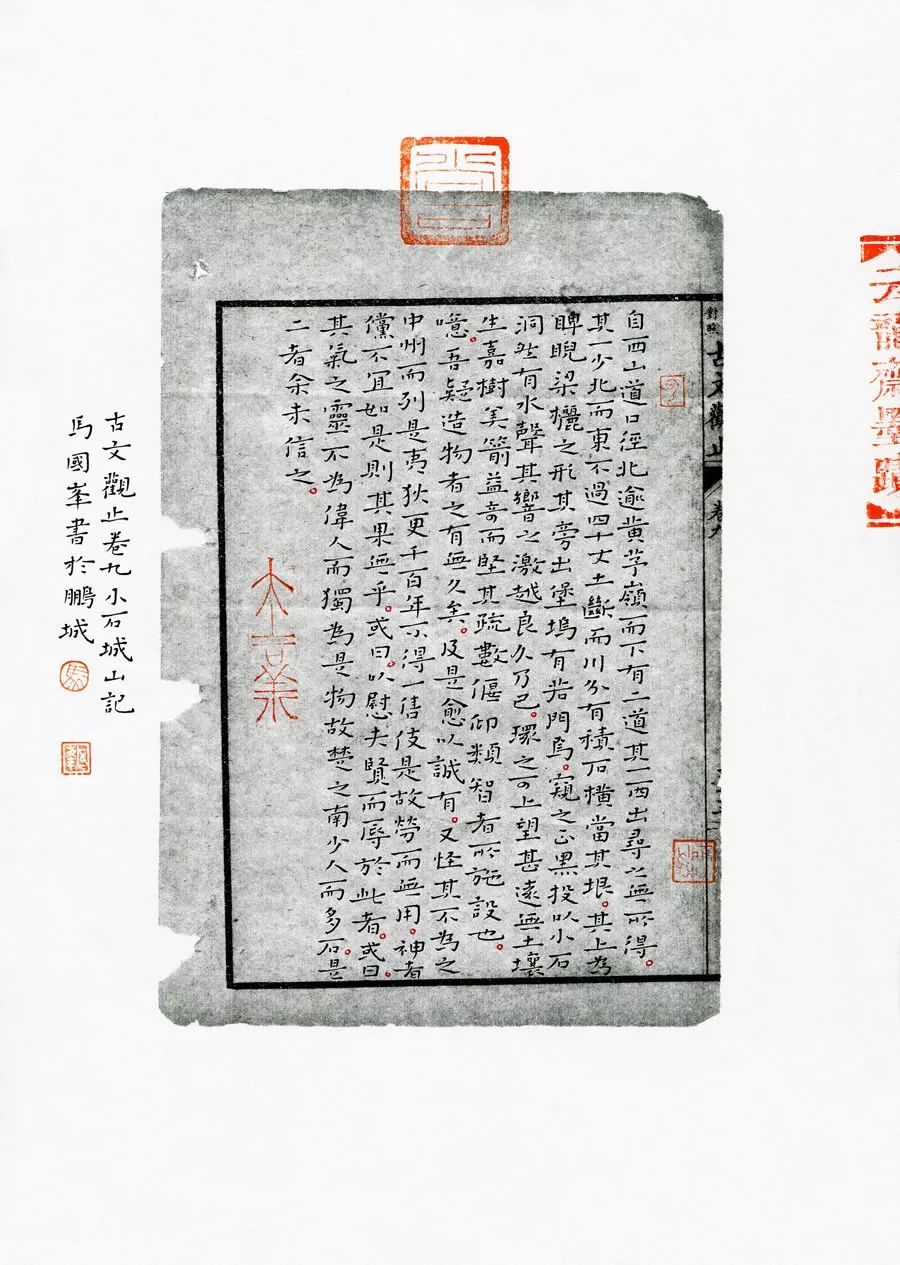 龍齋墨蹟
古文觀止 卷九
自西山道口徑北逾黃茅嶺而下有二道其一西出尋之無所得。
其一少北而東不過四十丈土斷而川分有積石橫當其垠。其上為
睥睨梁欐之形其旁出堡塢有若門焉。窺之正黑投以小石
洞然有水聲其響之激越良久乃已。環之可上望甚遠無土壤
生嘉樹美箭益奇而堅其疏數偃仰類智者所施設也。
噫。吾疑造物者之有無久矣。及是愈以誠有。又怪其不為之
中州而列是夷狄更千百年不得一售伎是故勞而無用。神者
儻不宜如是則其果無乎。或曰。以慰夫賢而辱於此者。或曰。
其氣之靈不為偉人而獨為是物故楚之南少人而多石。是
二者余未信之。
古文觀止卷九小石城山記
馬國峯書於鵬城